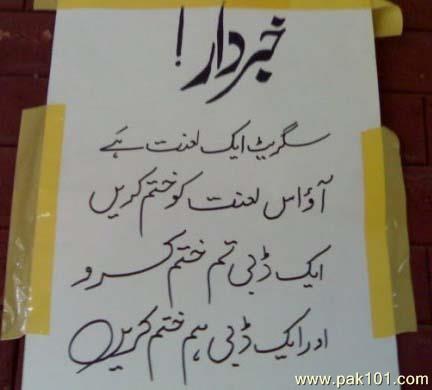 خبردار !
سگریٹ ایک لعنت ہے
آؤ اس لعنت کو ختم کریں
ایک ڈبی تم ختم کرو
اور ایک ڈبی ہم ختم کریں
www.pak101.com